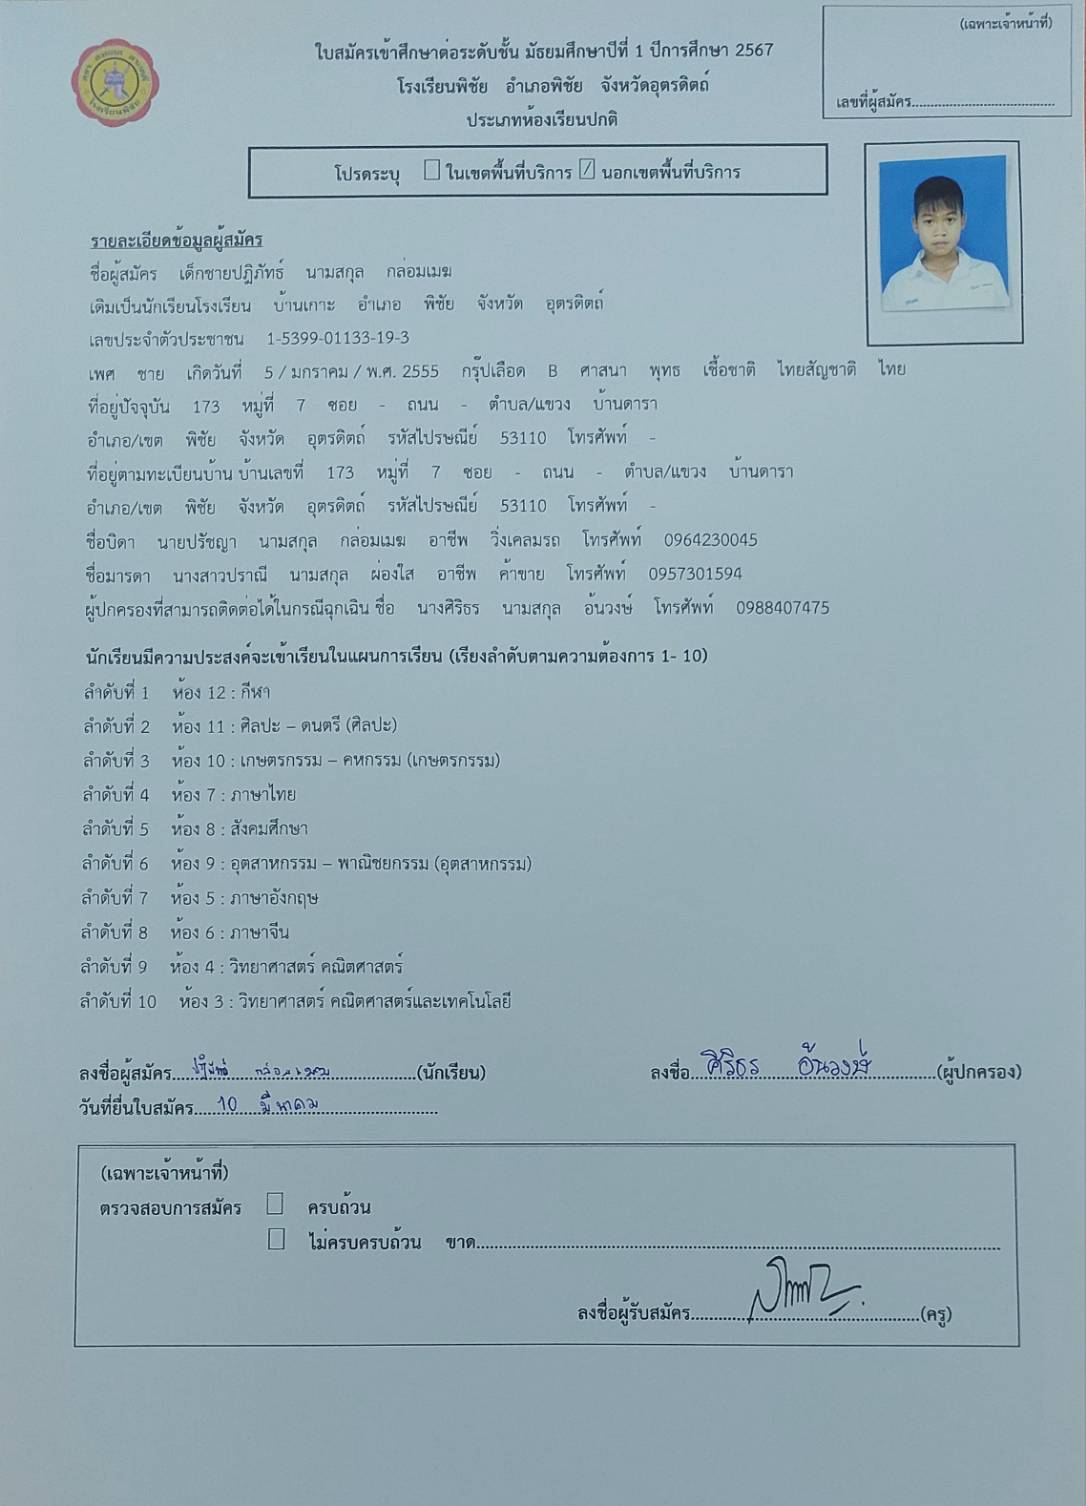 (เฉพาะเจ้าหน้าที่)
เลขที่ผู้สมัคร......................................
ใบสมัครเข้าศึกษาต่อระดับชั้น มัธยมศึกษาปีที่ 1 ปีการศึกษา 2567
โรงเรียนพิชัย อำเภอพิชัย จังหวัดอุตรดิตถ์
ประเภทห้องเรียนปกติ
โปรดระบุ ☐ ในเขตพื้นที่บริการ ☑ นอกเขตพื้นที่บริการ
รายละเอียดข้อมูลผู้สมัคร
ชื่อผู้สมัคร เด็กชายปฎิภัทธ์ นามสกุล กล่อมเมฆ
เดิมเป็นนักเรียนโรงเรียน บ้านเกาะ อำเภอ พิชัย จังหวัด อุตรดิตถ์
เลขประจำตัวประชาชน 1-5399-01133-19-3
เพศ ชาย เกิดวันที่ 5 / มกราคม / พ.ศ. 2555 กรุ๊ปเลือด B ศาสนา พุทธ เชื้อชาติ ไทยสัญชาติ ไทย
ที่อยู่ปัจจุบัน 173 หมู่ที่ 7 ซอย - ถนน - ตำบล/แขวง บ้านดารา
อำเภอ/เขต พิชัย จังหวัด อุตรดิตถ์ รหัสไปรษณีย์ 53110 โทรศัพท์ -
ที่อยู่ตามทะเบียนบ้าน บ้านเลขที่ 173 หมู่ที่ 7 ซอย - ถนน - ตำบล/แขวง บ้านดารา
อำเภอ/เขต พิชัย จังหวัด อุตรดิตถ์ รหัสไปรษณีย์ 53110 โทรศัพท์ -
ชื่อบิดา นายปรัชญา นามสกุล กล่อมเมฆ อาชีพ วิ่งเคลมรถ โทรศัพท์ 0964230045
ชื่อมารดา นางสาวปราณี นามสกุล ผ่องใส อาชีพ ค้าขาย โทรศัพท์ 0957301594
ผู้ปกครองที่สามารถติดต่อได้ในกรณีฉุกเฉิน ชื่อ นางศิริธร นามสกุล อ้นวงษ์ โทรศัพท์ 0988407475
นักเรียนมีความประสงค์จะเข้าเรียนในแผนการเรียน (เรียงลำดับตามความต้องการ 1- 10)
ลำดับที่ 1 ห้อง 12 : กีฬา
ลำดับที่ 2 ห้อง 11 : ศิลปะ – ดนตรี (ศิลปะ)
ลำดับที่ 3 ห้อง 10 : เกษตรกรรม – คหกรรม (เกษตรกรรม)
ลำดับที่ 4 ห้อง 7 : ภาษาไทย
ลำดับที่ 5 ห้อง 8 : สังคมศึกษา
ลำดับที่ 6 ห้อง 9 : อุตสาหกรรม – พาณิชยกรรม (อุตสาหกรรม)
ลำดับที่ 7 ห้อง 5 : ภาษาอังกฤษ
ลำดับที่ 8 ห้อง 6 : ภาษาจีน
ลำดับที่ 9 ห้อง 4 : วิทยาศาสตร์ คณิตศาสตร์
ลำดับที่ 10 ห้อง 3 : วิทยาศาสตร์ คณิตศาสตร์และเทคโนโลยี
ลงชื่อผู้สมัคร.... กล่อมเมฆ ....(นักเรียน) ลงชื่อ.... ศิริธร อ้นวงษ์ ....(ผู้ปกครอง)
วันที่ยื่นใบสมัคร.... 10 มีนาคม ....
(เฉพาะเจ้าหน้าที่)
ตรวจสอบการสมัคร ☐ ครบถ้วน
☐ ไม่ครบครบถ้วน ขาด......................................
ลงชื่อผู้รับสมัคร......................................(ครู)